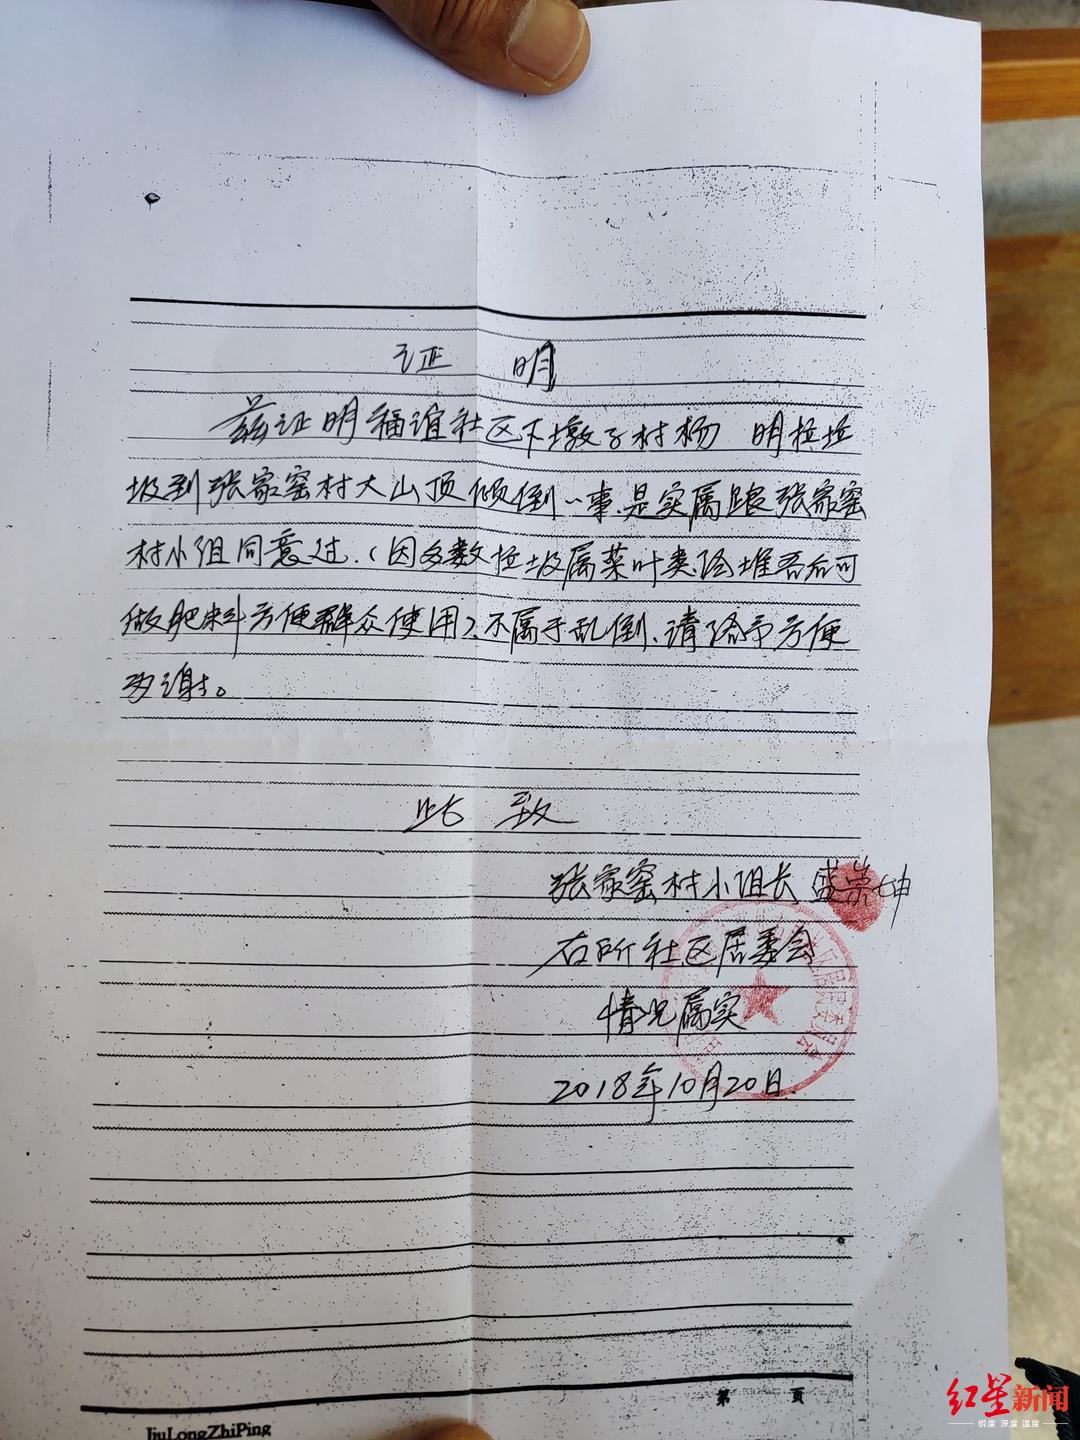 证 明
兹证明福谊社区下墩子村杨 明拉垃
圾到张家窑村大山顶倾倒一事.是实属跟张家窑
村小组同意过.(因多数垃圾属菜叶类.经堆否后可
做肥料方便群众使用).不属于乱倒.请给予方便
为谢。
此 致
张家窑村小组长 盛崇坤
右所社区居委会
情况属实
2018年10月20日.
社区居民委员会
第 页
JiuLongZhiPing
红星新闻
锐度 深度 温度